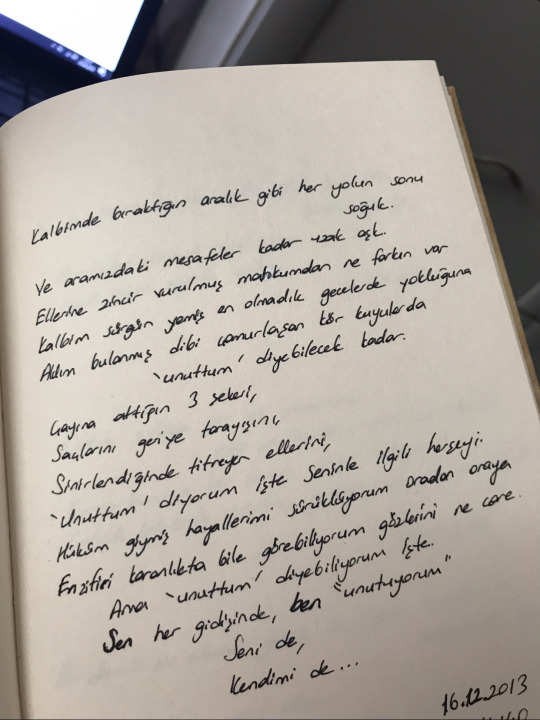 Kalbimde bıraktığın aralık gibi her yolun sonu
soğuk.
Ve aramızdaki mesafeler kadar uzak aşk.
Ellerine zincir vurulmuş mahkumdan ne farkın var
Kalbim sürgün yemiş en olmadık gecelerde yokluğuna
Aklım bulanmış dibi çamurlaşan kör kuyularda
'unuttum' diyebilecek kadar.
Çayına attığın 3 şekeri,
Saçlarını geriye tarayışını,
Sinirlendiğinde titreyen ellerini,
'Unuttum' diyorum işte seninle ilgili herşeyi.
Hüküm giymiş hayallerimi sürüklüyorum oradan oraya
Enzifiri karanlıkta bile görebiliyorum gözlerini ne çare.
Ama 'unuttum' diyebiliyorum işte.
Sen her gidişinde, ben "unutuyorum"
Seni de,
Kendimi de...
16.12.2013